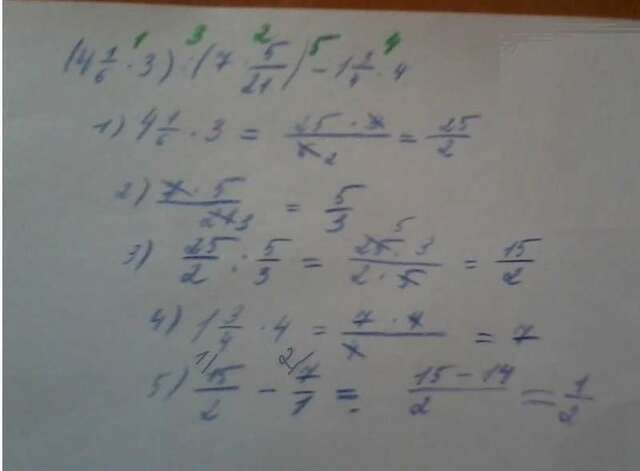 1 3 2 5 4
(4 1/6 · 3) : (7 · 5/21) - 1 3/4 · 4
1) 4 1/6 · 3 = 25 · 3/6 2 = 25/2
2) 7 · 5/21 3 = 5/3
3) 25/2 : 5/3 = 25 5 · 3/2 · 5 = 15/2
4) 1 3/4 · 4 = 7 · 4/4 = 7
5) 15/2 - 7/1 = 15 - 14/2 = 1/2